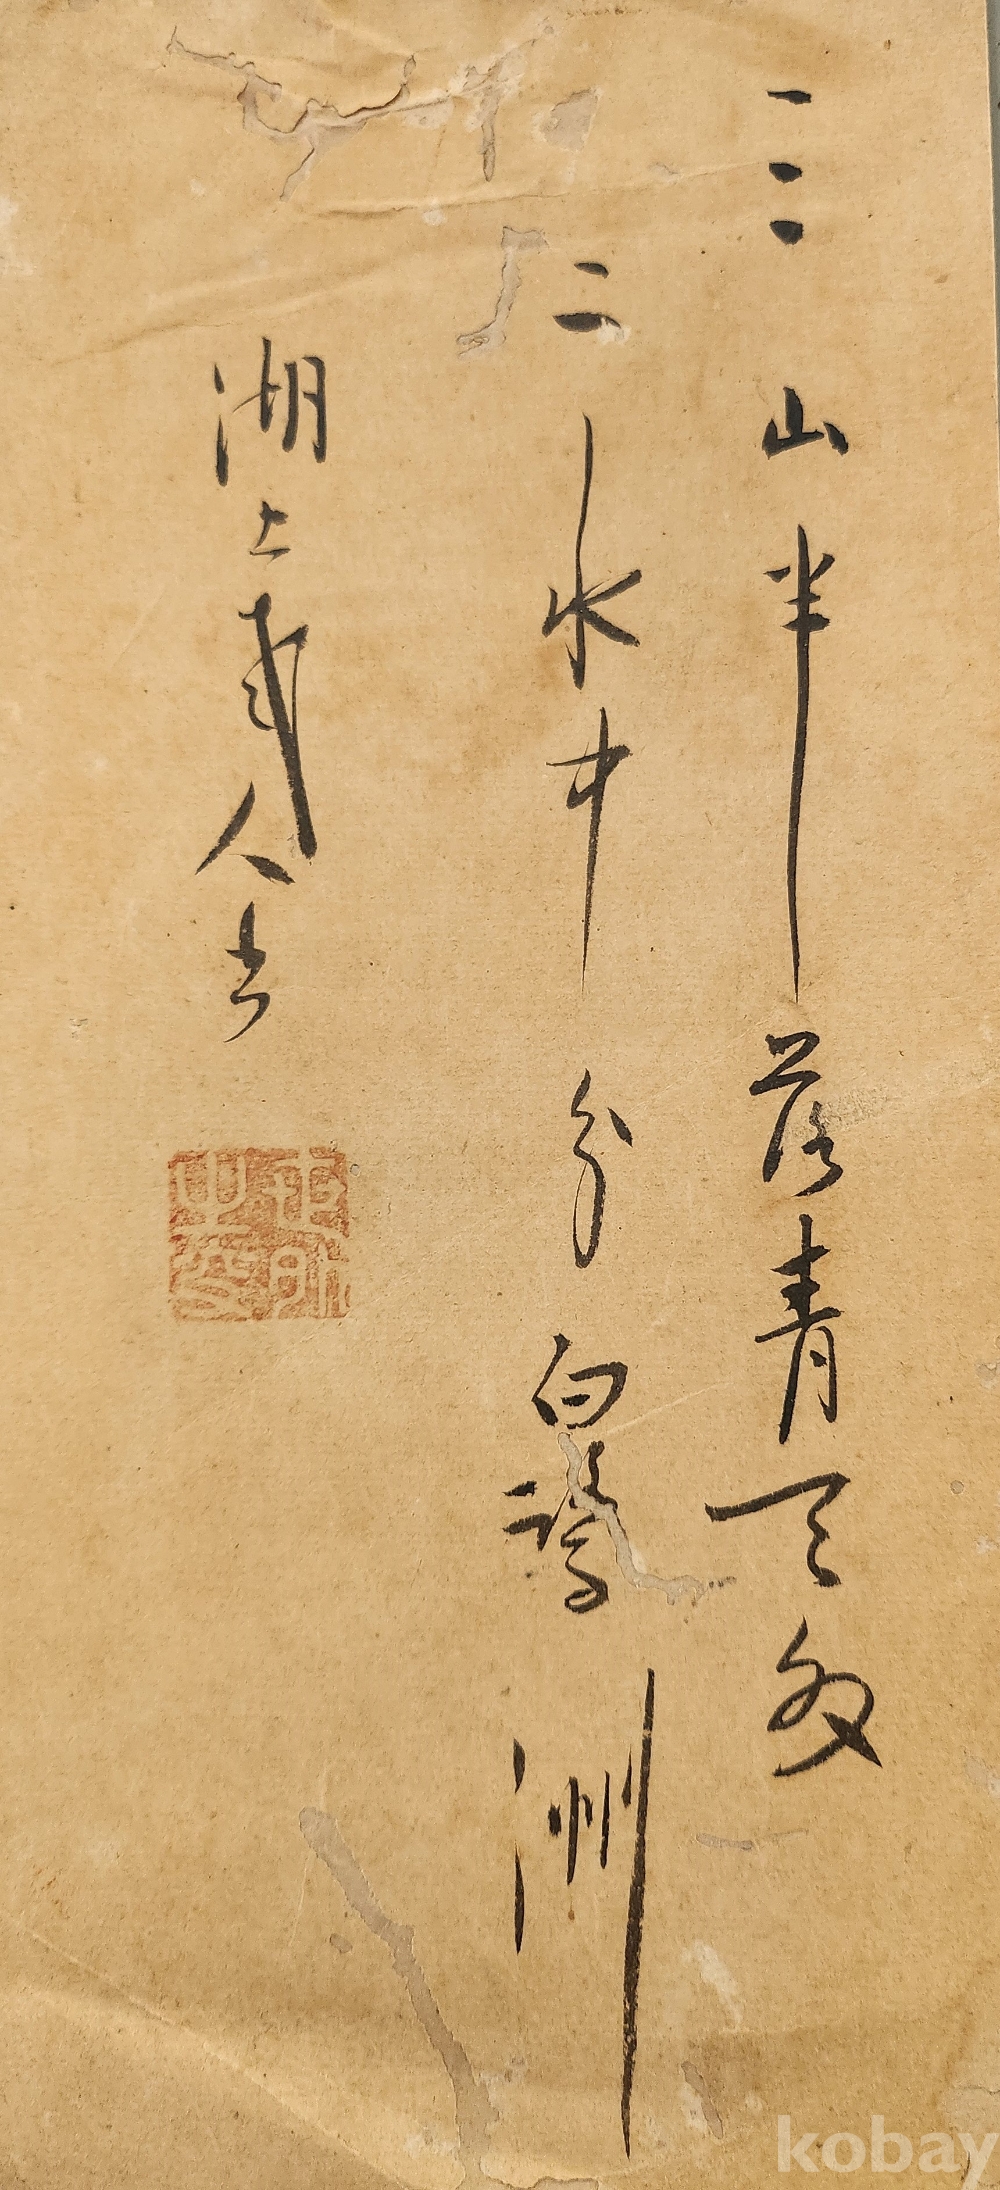 三山半落青天外
二水中分白鷺洲
湖上人書
kobay